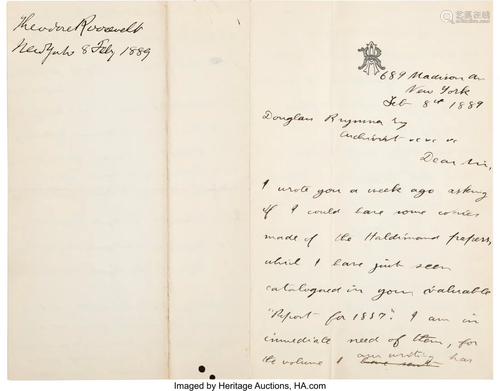 Theodore Roosevelt
New York 8 Feby 1889
689 Madison Av
New York
Feb 8th 1889
Douglas Brymner Esq
Archivist &c &c
Dear Sir,
I wrote you a week ago asking
if I could have some copies
made of the Haldimand papers,
which I have just seen
catalogued in your valuable
"Report for 1887". I am in
immediate need of them, for
the volume I am writing has
Imaged by Heritage Auctions, HA.com